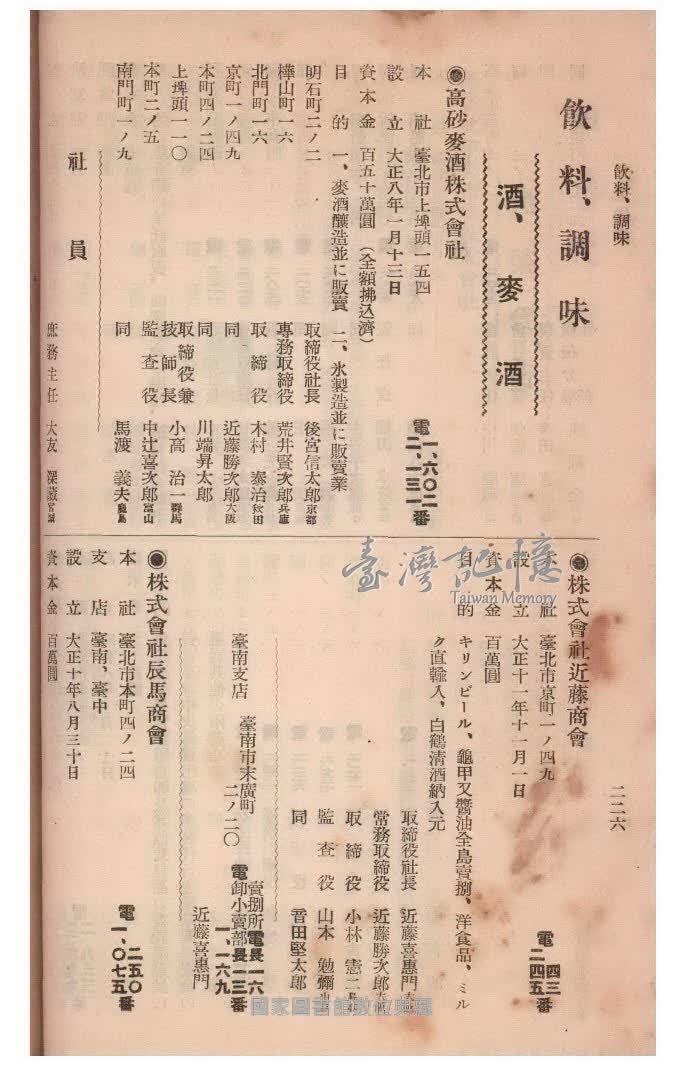 飲料、調味
二二六
飲料、調味
酒、麥酒
◉高砂麥酒株式會社
本社 臺北市上埤頭一五四
電一、六〇二 二、一三一番
設立 大正八年一月十三日
資本金 百五十萬圓（全額拂込濟）
目的 一、麥酒釀造並に販賣 二、氷製造並に販賣業
明石町二ノ二 取締役社長 後宮信太郎 京都
樺山町一六 專務取締役 荒井賢次郎 兵庫
北門町一六 取締役 木村泰治 秋田
京町一ノ四九 同 近藤勝次郎 大阪
本町四ノ二四 同 川端昇太郎
上埤頭一一〇 取締役兼技師長 小高治一 群馬
本町二ノ五 監査役 中辻喜次郎 富山
南門町一ノ九 同 馬渡義夫 鹿島
社員
庶務主任 大友深藏 宮城
◉株式會社近藤商會
本社 臺北市京町一ノ四九
電 四三 二四五番
設立 大正十一年十一月一日
資本金 百萬圓
目的 キリンビール、龜甲又醬油全島賣捌、洋食品、ミル
ク直輸入、白鶴清酒納入元
取締役社長 近藤喜惠門
常務取締役 近藤勝次郎
取締役 小林憲二
監査役 山本勉彌
同 音田堅太郎
臺南支店 臺南市末廣町二ノ二〇
賣捌所電長一六
卸小賣部電長一三番
一、一六九
近藤喜惠門
◉株式會社辰馬商會
本社 臺北市本町四ノ二四
電 二五〇 一、〇七五番
支店 臺南、臺中
設立 大正十年八月三十日
資本金 百萬圓
臺灣記憶
Taiwan Memory
國家圖書館數位典藏